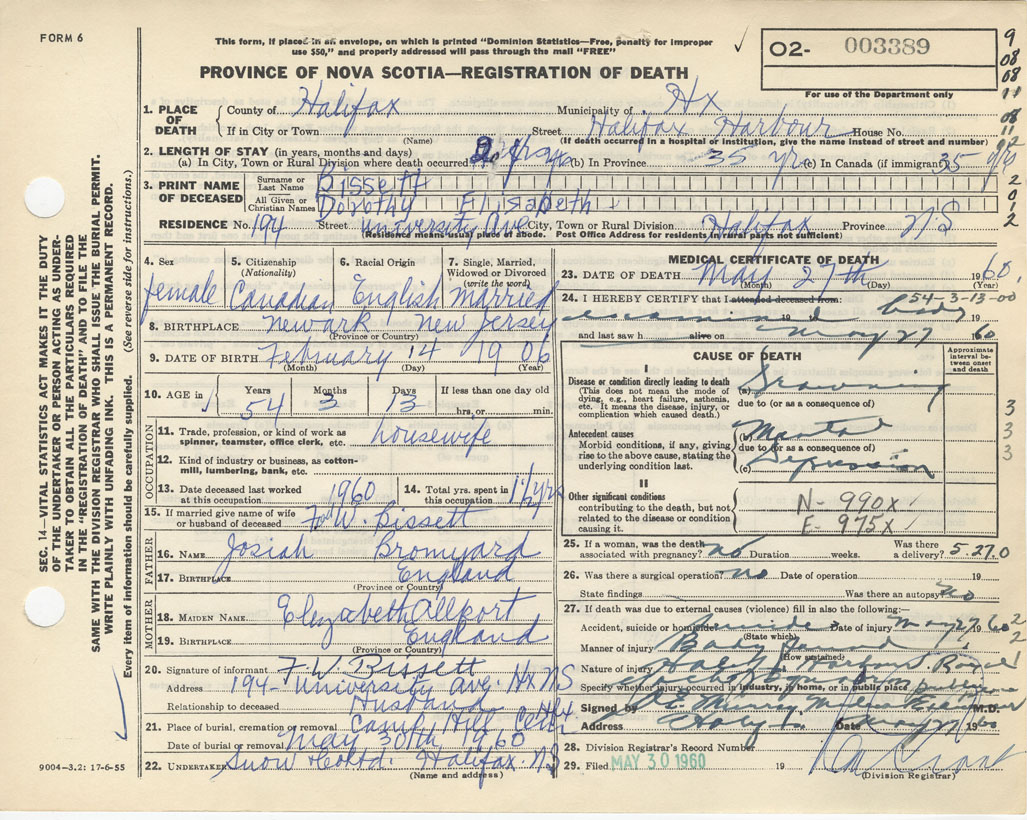 FORM 6
This form, if placed in an envelope, on which is printed "Dominion Statistics—Free, penalty for improper
use $50," and properly addressed will pass through the mail "FREE"
PROVINCE OF NOVA SCOTIA—REGISTRATION OF DEATH
O2- 003389
For use of the Department only
9
08
08
11
08
11
2
0
1
2
1. PLACE OF DEATH County of Halifax Municipality of Hx
If in City or Town (Name) Street Halifax Harbour House No.
(If death occurred in a hospital or institution, give the name instead of street and number)
2. LENGTH OF STAY (in years, months and days)
(a) In City, Town or Rural Division where death occurred yrs (b) In Province 35 yrs (c) In Canada (if immigrant) 35 yrs
3. PRINT NAME OF DECEASED Surname or Last Name Bissett
All Given or Christian Names Dorothy Elisabeth
RESIDENCE No. 194 Street University Ave. City, Town or Rural Division Halifax Province N.S
(Residence means usual place of abode. Post Office Address for residents in rural parts not sufficient)
SEC. 14—VITAL STATISTICS ACT MAKES IT THE DUTY
OF THE UNDERTAKER OR PERSON ACTING AS UNDER-
TAKER TO OBTAIN ALL THE PARTICULARS REQUIRED
IN THE "REGISTRATION OF DEATH" AND TO FILE THE
SAME WITH THE DIVISION REGISTRAR WHO SHALL ISSUE THE BURIAL PERMIT.
WRITE PLAINLY WITH UNFADING INK. THIS IS A PERMANENT RECORD.
Every item of information should be carefully supplied. (See reverse side for instructions.)
4. Sex female
5. Citizenship (Nationality) Canadian
6. Racial Origin English
7. Single, Married, Widowed or Divorced (write the word) married
8. BIRTHPLACE Newark New Jersey
(Province or Country)
9. DATE OF BIRTH February 14 1906
(Month) (Day) (Year)
10. AGE in Years 54 Months 3 Days 13 If less than one day old hrs. or min.
OCCUPATION
11. Trade, profession, or kind of work as spinner, teamster, office clerk, etc. housewife
12. Kind of industry or business, as cotton-mill, lumbering, bank, etc.
13. Date deceased last worked at this occupation 1960
14. Total yrs. spent in this occupation yrs
15. If married give name of wife or husband of deceased F. W. Bissett
FATHER
16. NAME Josiah Bromyard
17. BIRTHPLACE England
(Province or Country)
MOTHER
18. MAIDEN NAME Elezabeth Allport
19. BIRTHPLACE England
(Province or Country)
20. Signature of informant F. W. Bissett
Address 194- University Ave. Hx NS
Relationship to deceased Husband
21. Place of burial, cremation or removal Camp Hill Cem Hx
Date of burial or removal May 30th 1960
22. UNDERTAKER Snow & Co Ltd. Halifax. NS
(Name and address)
9004–3.2: 17-6-55
MEDICAL CERTIFICATE OF DEATH
23. DATE OF DEATH May 27th 1960
(Month) (Day) (Year)
24. I HEREBY CERTIFY that I attended deceased from: 54-3-13-00
19 body 19
and last saw h alive on May 27 1960
CAUSE OF DEATH
Approximate interval between onset and death
I
Disease or condition directly leading to death
(This does not mean the mode of dying, e.g., heart failure, asthenia, etc. It means the disease, injury, or complication which caused death.)
(a) Drowning
due to (or as a consequence of)
Antecedent causes
Morbid conditions, if any, giving rise to the above cause, stating the underlying condition last.
(b) Mental
due to (or as a consequence of)
(c) Depression
3
3
3
3
II
Other significant conditions
contributing to the death, but not related to the disease or condition causing it.
N- 990X
E- 975X
25. If a woman, was the death associated with pregnancy? no Duration weeks. Was there a delivery? 5.27.0
26. Was there a surgical operation? no Date of operation 19
State findings Was there an autopsy? no
27. If death was due to external causes (violence) fill in also the following:—
Accident, suicide or homicide Suicide Date of injury May 27 1960 2
(State which)
Manner of injury Body found 2
(How sustained)
Nature of injury Halifax Harbour Royal 1
Specify whether injury occurred in industry, in home, or in public place
Signed by Murray M.D.
Address Date May 27 1960
28. Division Registrar's Record Number
29. Filed MAY 30 1960 19
(Division Registrar)